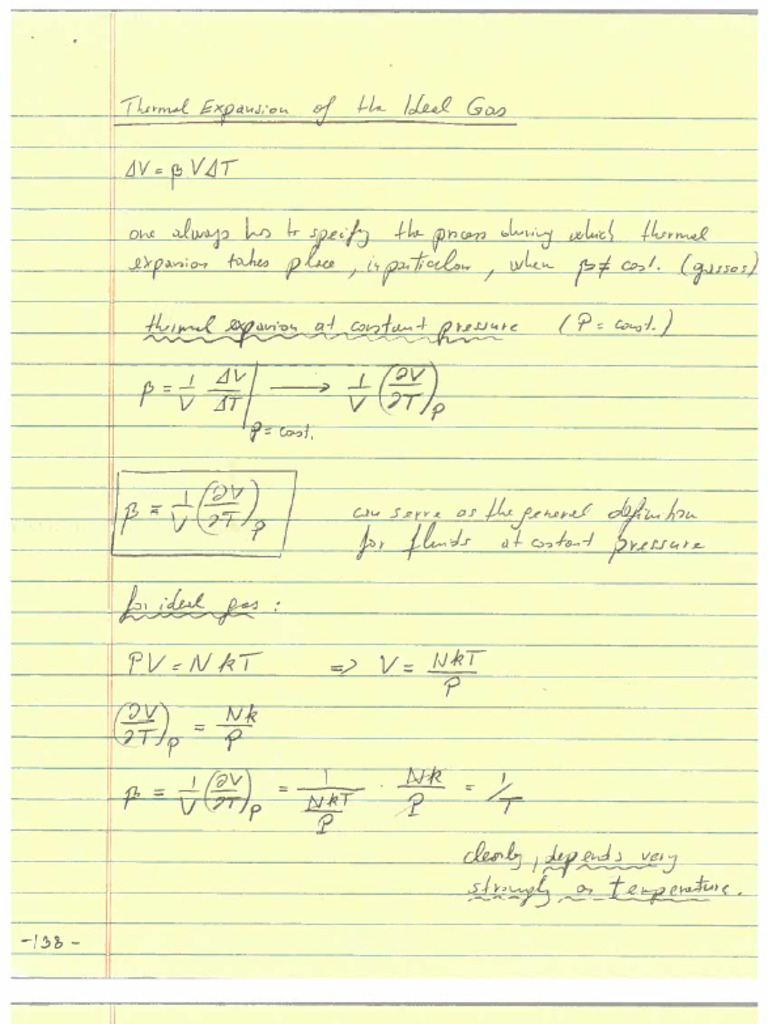 Thermal Expansion of the Ideal Gas
ΔV = β V ΔT
one always has to specify the process during which thermal
expansion takes place, in particular, when β ≠ cost. (gasses)
thermal expansion at constant pressure (P = const.)
β = 1/V ΔV/ΔT |P = cost. ⟶ 1/V (∂V/∂T)P
β = 1/V (∂V/∂T)P can serve as the general definition
for fluids at costant pressure
for ideal gas :
PV = NkT ⇒ V = NkT/P
(∂V/∂T)P = Nk/P
β = 1/V (∂V/∂T)P = 1/(NkT/P) · Nk/P = 1/T
clearly, depends very
strongly on temperature.
-138-